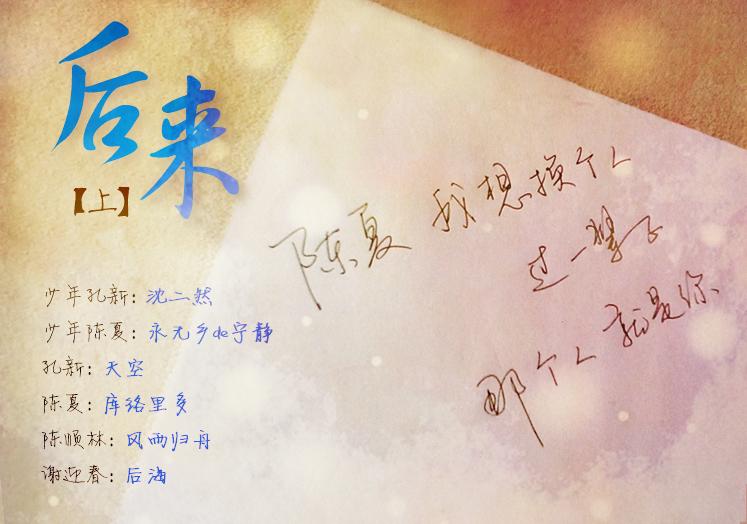 后来
【上】
少年孔新：沈二然
少年陈夏：永无乡de宁静
孔新：天空
陈夏：库洛里多
陈顺林：风雨归舟
谢迎春：后海
陈夏 我想换个人
过一辈子
那个人 就是你